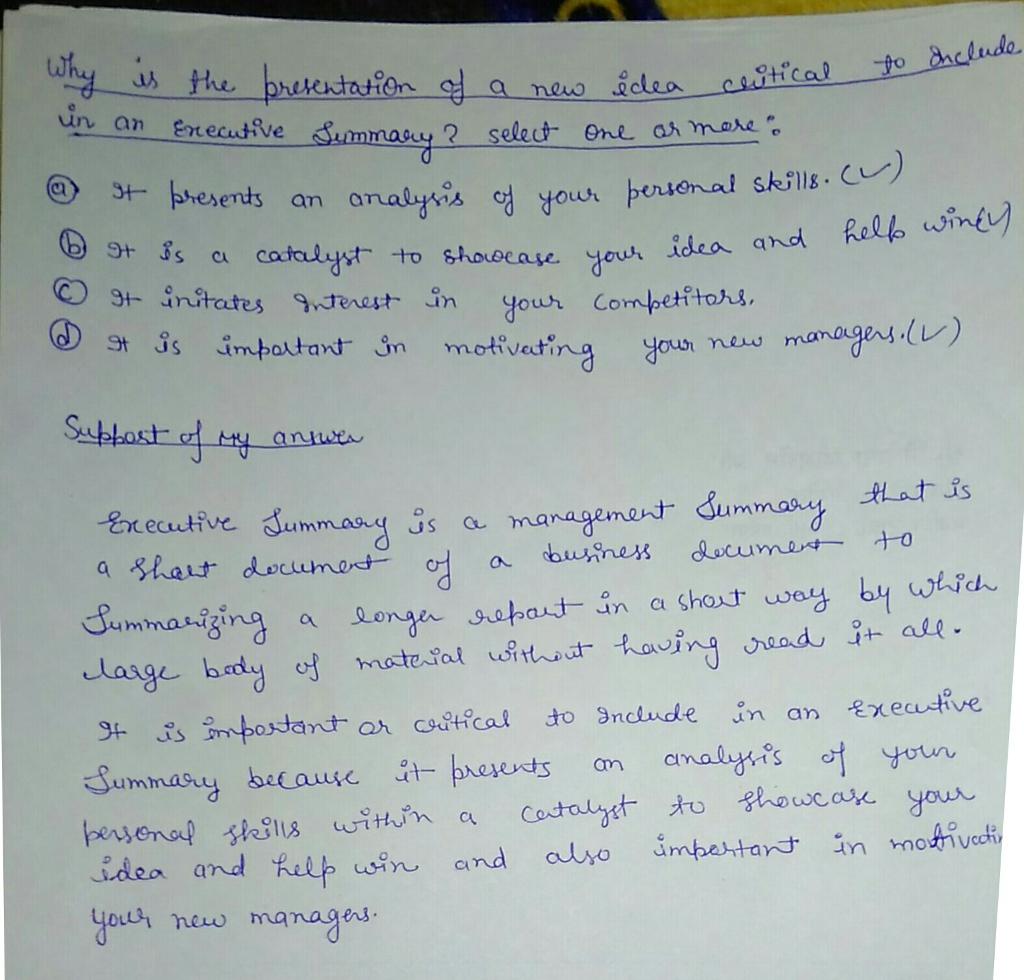 Why is the presentation of a new idea critical to Include
in an Executive Summary? select one or more:
(a) It presents an analysis of your personal skills. (✓)
(b) It is a catalyst to showcase your idea and help win(✓)
(c) It initates Interest in your Competitors.
(d) It is important in motivating your new managers.(✓)
Support of My answer
Executive Summary is a management Summary that is
a Short document of a business document to
Summarizing a longer report in a short way by which
large body of material without having read it all.
It is important or critical to Include in an Executive
Summary because it presents an analysis of your
personal skills within a catalyst to showcase your
idea and help win and also important in motivatin
your new managers.